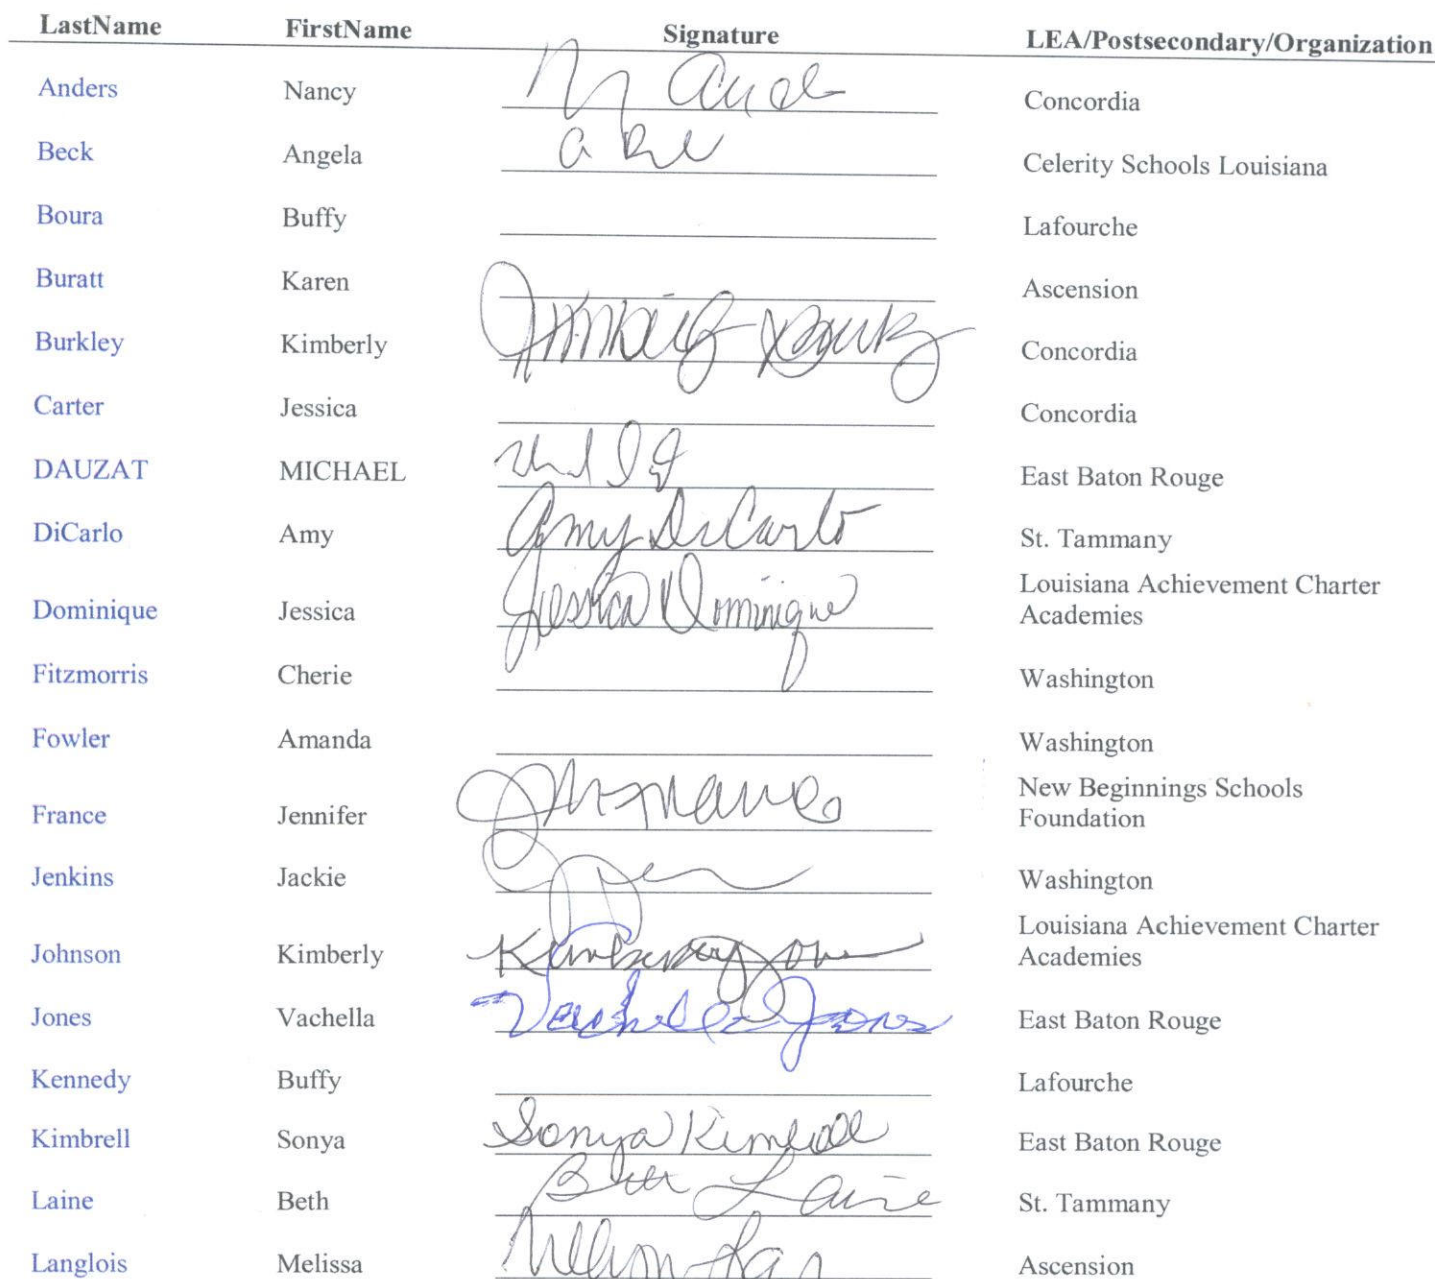 LastName FirstName Signature LEA/Postsecondary/Organization
Anders Nancy Concordia
Beck Angela Celerity Schools Louisiana
Boura Buffy Lafourche
Buratt Karen Ascension
Burkley Kimberly Concordia
Carter Jessica Concordia
DAUZAT MICHAEL East Baton Rouge
DiCarlo Amy Amy DiCarlo St. Tammany
Dominique Jessica Jessica Dominique Louisiana Achievement Charter
Academies
Fitzmorris Cherie Washington
Fowler Amanda Washington
France Jennifer New Beginnings Schools
Foundation
Jenkins Jackie Washington
Johnson Kimberly Kimberly Louisiana Achievement Charter
Academies
Jones Vachella Jones East Baton Rouge
Kennedy Buffy Lafourche
Kimbrell Sonya Sonya East Baton Rouge
Laine Beth Beth Laine St. Tammany
Langlois Melissa Ascension